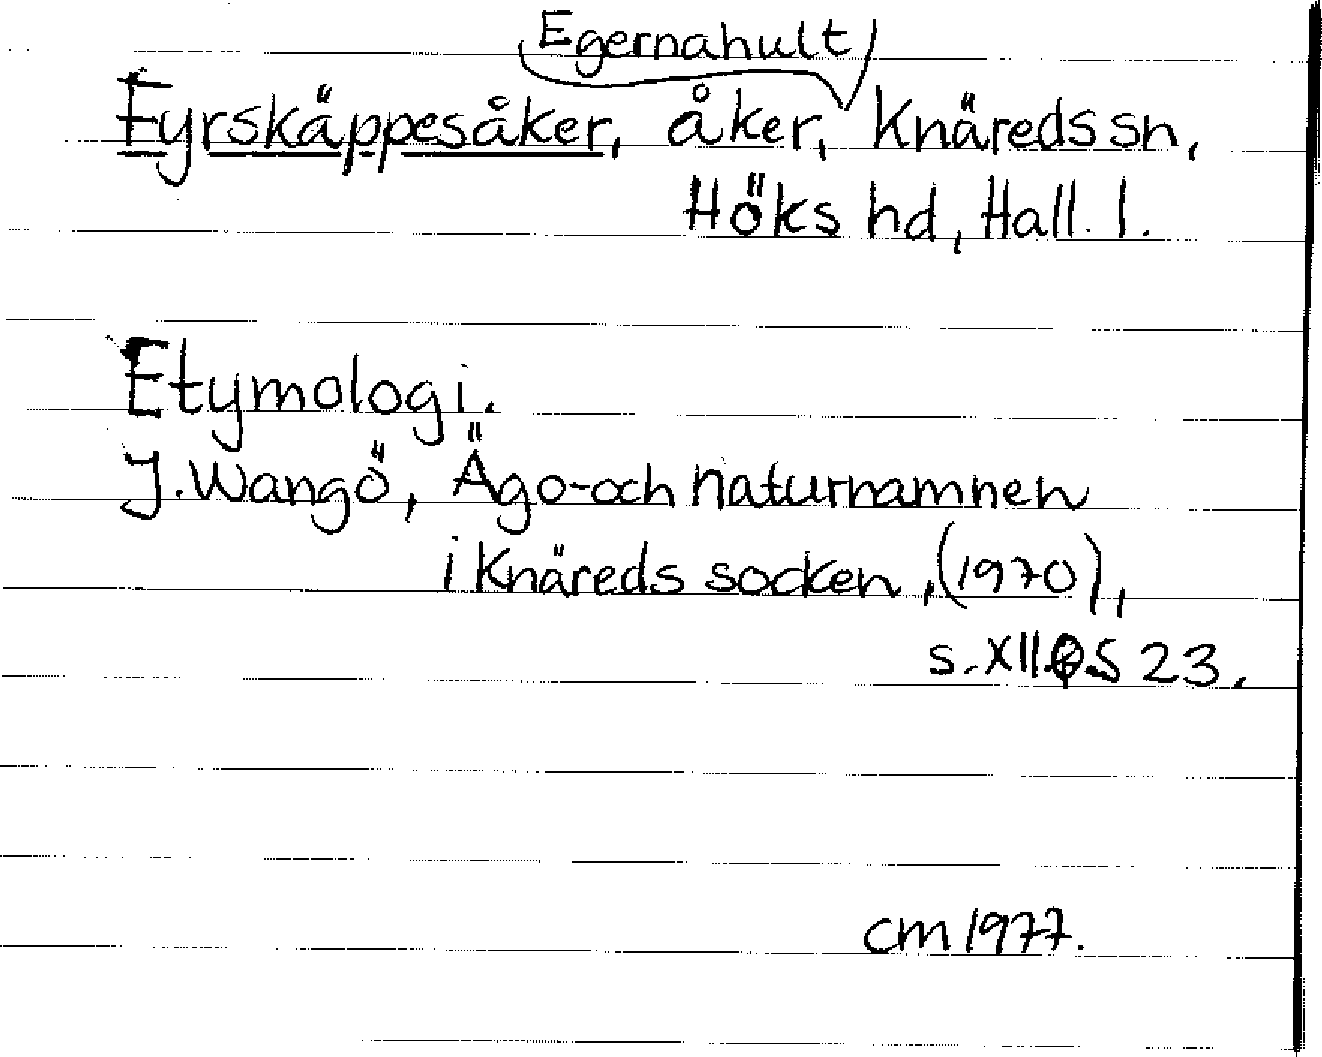 Egernahult
Fyrskäppesåker, åker, Knäreds sn,
Höks hd, Hall. l.
Etymologi.
J. Wangö, Ägo- och naturnamnen
i Knäreds socken, (1970),
s. XII S 23.
cm 1977.